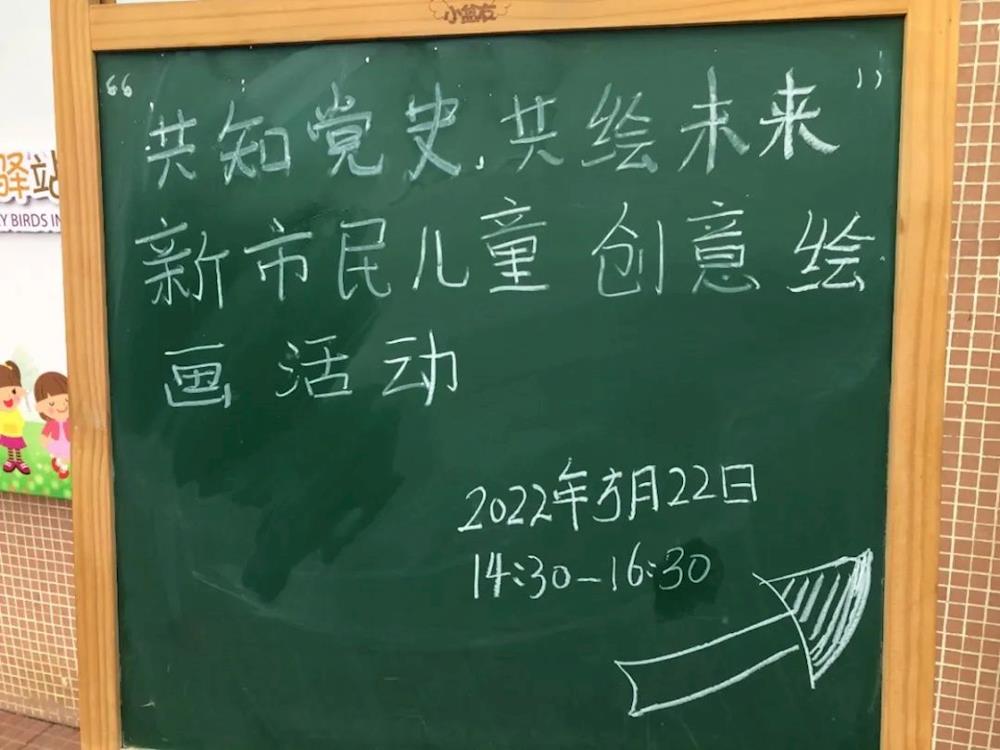 小盆友
“共知党史.共绘未来”
新市民儿童创意绘
画活动
2022年5月22日
14:30-16:30
驿站
Y BIRDS IN